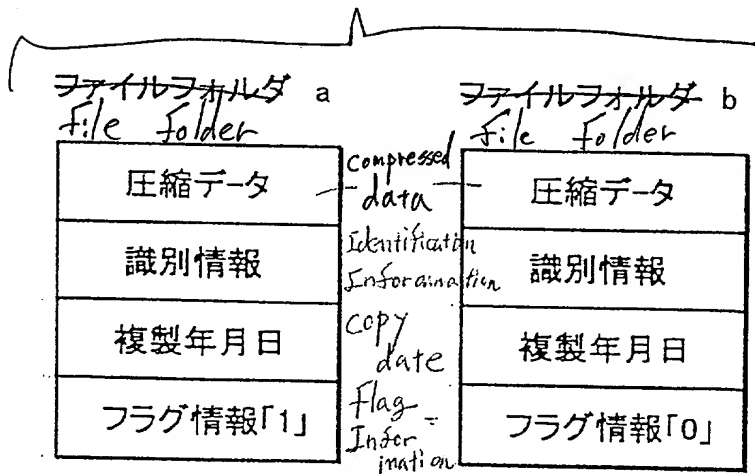 ファイルフォルダ a
File Folder
圧縮データ
識別情報
複製年月日
フラグ情報「1」
compressed
data
Identification
Inforamation
copy
date
Flag
Infor
mation
ファイルフォルダ b
File Folder
圧縮データ
識別情報
複製年月日
フラグ情報「0」